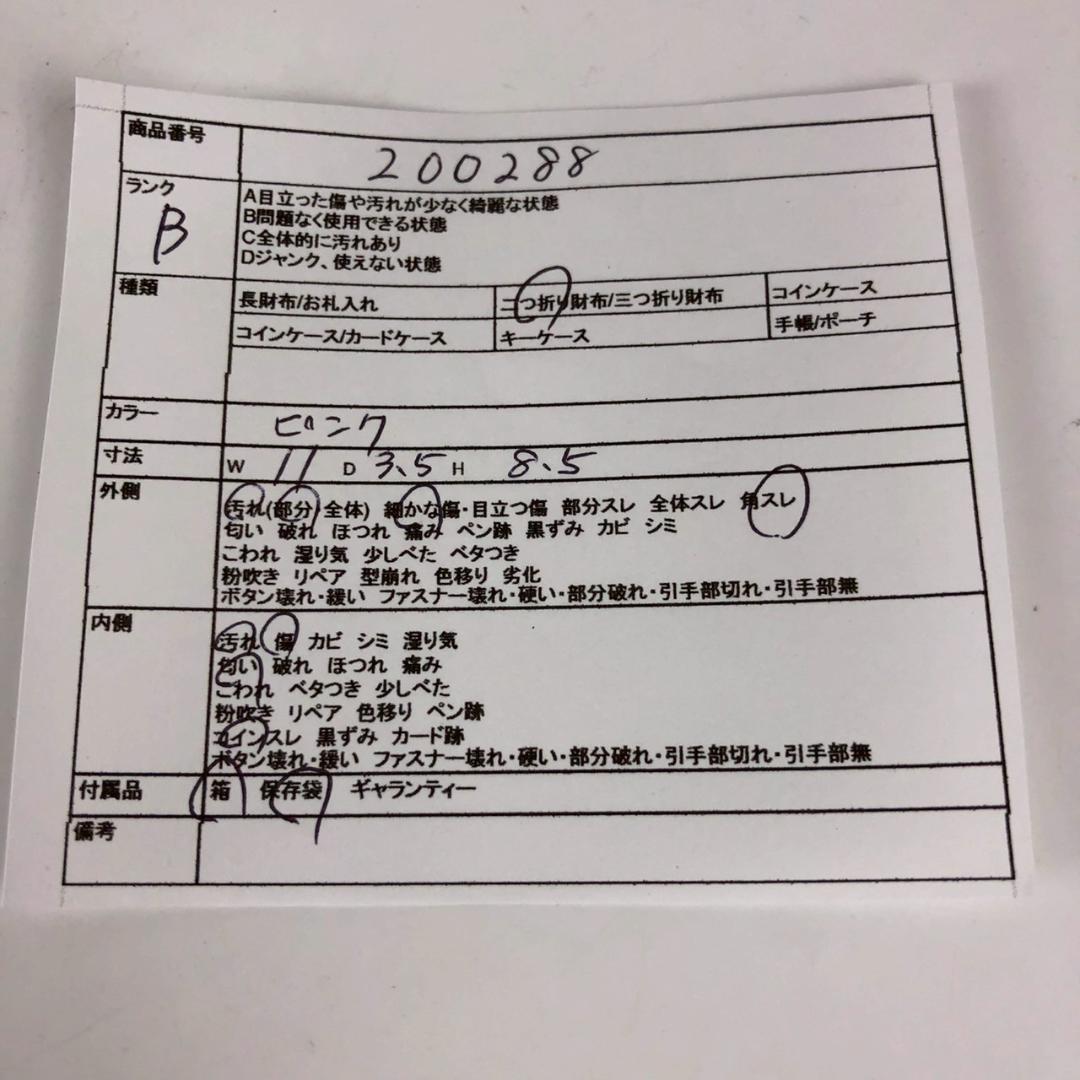 商品番号 200288
ランク B
A目立った傷や汚れが少なく綺麗な状態
B問題なく使用できる状態
C全体的に汚れあり
Dジャンク、使えない状態
種類 長財布/お札入れ 二つ折り財布/三つ折り財布 コインケース
コインケース/カードケース キーケース 手帳/ポーチ
カラー ピンク
寸法 W 11 D 3.5 H 8.5
外側 汚れ(部分/全体) 細かな傷・目立つ傷 部分スレ 全体スレ 角スレ
匂い 破れ ほつれ 痛み ペン跡 黒ずみ カビ シミ
こわれ 湿り気 少しべた ベタつき
粉吹き リペア 型崩れ 色移り 劣化
ボタン壊れ・緩い ファスナー壊れ・硬い・部分破れ・引手部切れ・引手部無
内側 汚れ 傷 カビ シミ 湿り気
匂い 破れ ほつれ 痛み
こわれ ベタつき 少しべた
粉吹き リペア 色移り ペン跡
コインスレ 黒ずみ カード跡
ボタン壊れ・緩い ファスナー壊れ・硬い・部分破れ・引手部切れ・引手部無
付属品 箱 保存袋 ギャランティー
備考